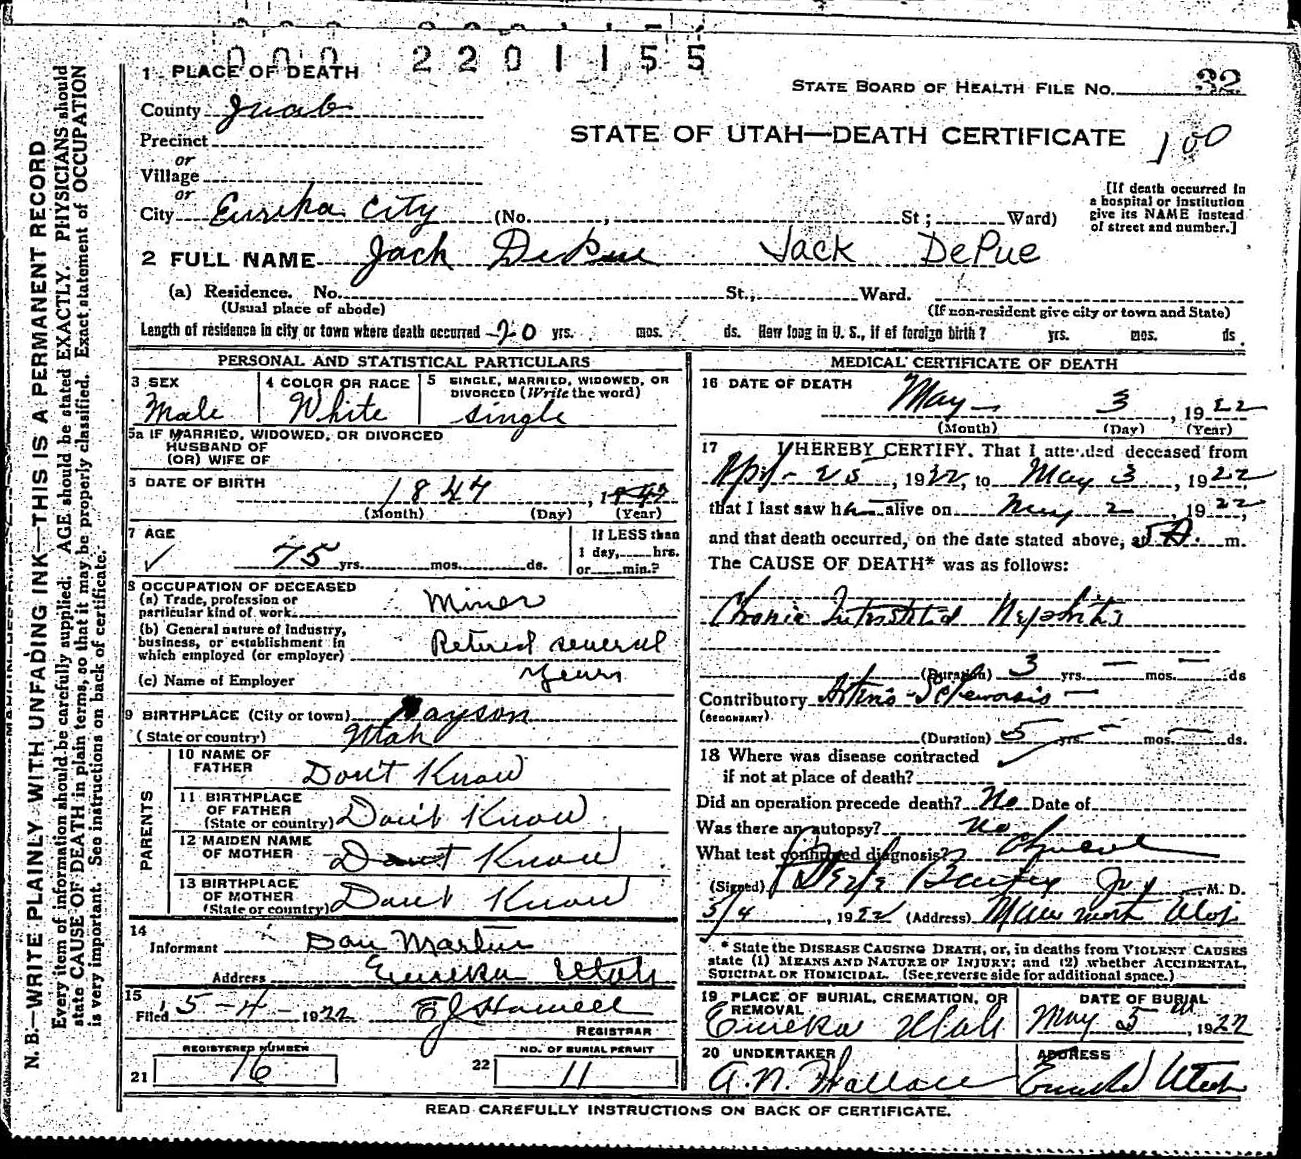 000 2201155
1 PLACE OF DEATH
STATE BOARD OF HEALTH FILE No. 32
County Juab
STATE OF UTAH—DEATH CERTIFICATE 100
Precinct
or
Village
or
City Eureka City (No. , St; Ward)
[If death occurred in
a hospital or institution
give its NAME instead
of street and number.]
2 FULL NAME Jack DePue Jack DePue
(a) Residence. No. St., Ward.
(Usual place of abode) (If non-resident give city or town and State)
Length of residence in city or town where death occurred 20 yrs. mos. ds. How long in U. S., if of foreign birth? yrs. mos. ds.
PERSONAL AND STATISTICAL PARTICULARS
3 SEX
Male
4 COLOR OR RACE
White
5 SINGLE, MARRIED, WIDOWED, OR
DIVORCED (Write the word)
single
5a IF MARRIED, WIDOWED, OR DIVORCED
HUSBAND OF
(OR) WIFE OF
6 DATE OF BIRTH
1847 , 1847
(Month) (Day) (Year)
7 AGE
75 yrs. mos. ds.
If LESS than
1 day, hrs.
or min.?
8 OCCUPATION OF DECEASED
(a) Trade, profession or
particular kind of work. Miner
(b) General nature of industry,
business, or establishment in
which employed (or employer) Retired several
years
(c) Name of Employer
9 BIRTHPLACE (City or town) Payson
(State or country) Utah
PARENTS
10 NAME OF
FATHER Don't Know
11 BIRTHPLACE
OF FATHER
(State or country) Don't Know
12 MAIDEN NAME
OF MOTHER Don't Know
13 BIRTHPLACE
OF MOTHER
(State or country) Don't Know
14
Informant Dan Martin
Address Eureka Utah
15
Filed 5-4- 1922 E J Howell
REGISTRAR
REGISTERED NUMBER
21 16
NO. OF BURIAL PERMIT
22 11
MEDICAL CERTIFICATE OF DEATH
16 DATE OF DEATH
May 3, 1922
(Month) (Day) (Year)
17 I HEREBY CERTIFY, That I attended deceased from
April 25, 1922, to May 3, 1922
that I last saw h alive on May 2, 1922,
and that death occurred, on the date stated above, at 5 A. m.
The CAUSE OF DEATH* was as follows:
Chronic Interstitial Nephritis
(Duration) 3 yrs. — mos. — ds
Contributory Arterio-Sclerosis —
(SECONDARY)
(Duration) 5 yrs. — mos. — ds.
18 Where was disease contracted
if not at place of death?
Did an operation precede death? No Date of
Was there an autopsy? no
What test confirmed diagnosis?
(Signed) Steele Bailey Jr M. D.
5/4, 1922 (Address) Mammoth Utah
* State the DISEASE CAUSING DEATH, or, in deaths from VIOLENT CAUSES
state (1) MEANS AND NATURE OF INJURY; and (2) whether ACCIDENTAL,
SUICIDAL OR HOMICIDAL. (See reverse side for additional space.)
19 PLACE OF BURIAL, CREMATION, OR
REMOVAL
Eureka Utah
DATE OF BURIAL
May 5th, 1922
20 UNDERTAKER
A. N. Wallace
ADDRESS
Eureka Utah
READ CAREFULLY INSTRUCTIONS ON BACK OF CERTIFICATE.
N. B.—WRITE PLAINLY WITH UNFADING INK—THIS IS A PERMANENT RECORD
Every item of information should be carefully supplied. AGE should be stated EXACTLY. PHYSICIANS should
state CAUSE OF DEATH in plain terms, so that it may be properly classified. Exact statement of OCCUPATION
is very important. See instructions on back of certificate.